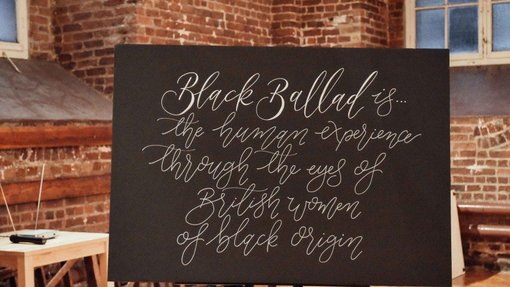 Black Ballad is...
the human experience
through the eyes of
British women
of black origin